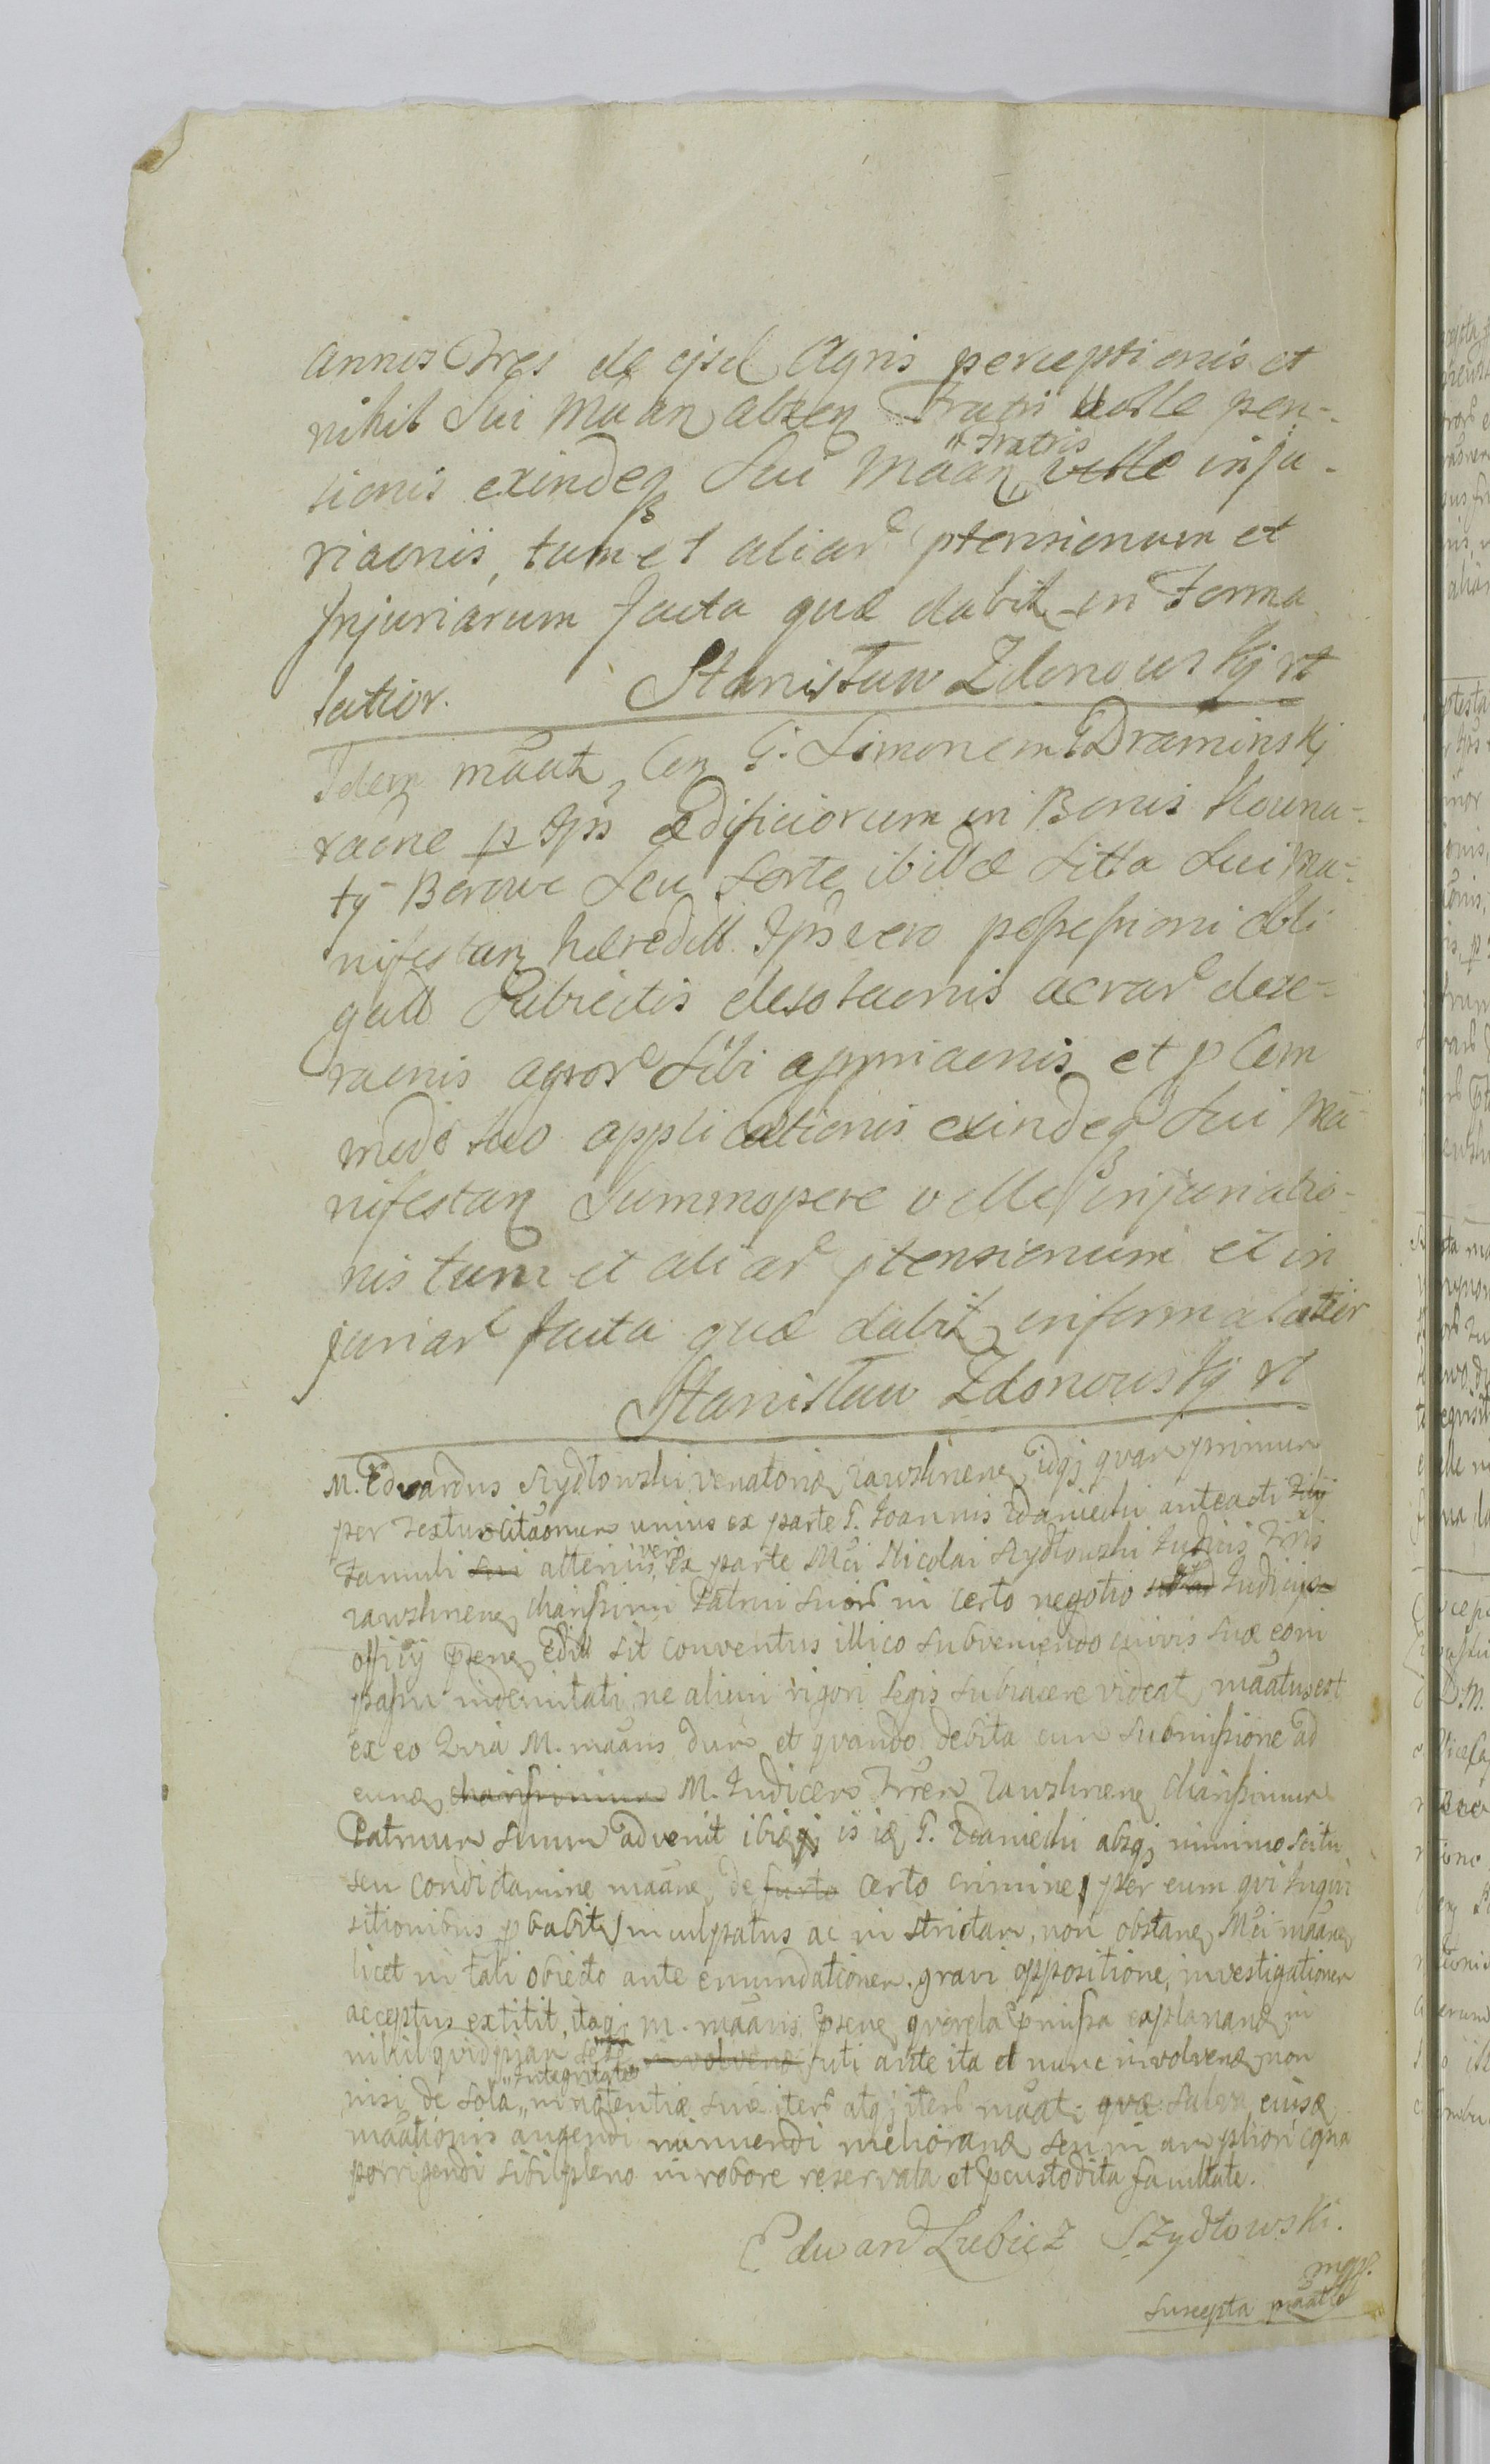 annos Tres de ejsd Agris perceptionis et
nihil Sui Maan alteri Fratri velle pen-
sionis exindeq Sui Maan Fratris velle inju-
riaonis, tum et aliar ptensionum et
Injuriarum facta quæ dabit in Forma
latior. Stanisław Zdonowskj rt
Idem maat, Con G. Simonem Draminskj
raone p Ips Ædificiorum in Bonis Kouna-
ty Borowe Seu Sorte ibidd Sitta Sui Ma-
nifestan hæreditt Ips vero possessioni obli
gatt Subiectis desolaonis acrar dese-
raonis agror Sibi appriaonis et p Com
modo suo applicationis exindeq Sui Ma
nifestan Summopere velle injuriatio-
nis tum et aliar ptensionum et in
juriar facta quæ dabit in forma latior
Stanisław Zdonowskj rt
M. Edvardus Szydłowski venatoris Rawshnen, idqj quam primum
per textum citaonum unius ex parte G. Joannis Zdaniechi anteacti
famuli sui alterius vero ex parte Mci Nicolai Szydłowski Judicis Trris
rawshnen charissimi Patrui suor in certo negotio Judicys
officy psen Editt sit conventus illico subveniendo cuivis suæ coni
passu indemnitati, ne alicui rigori legis subiacere videat, maatus est
ex eo Quia M. maans dum et quando debita cum submissione ad
eund charissimum M. Judicem Trrem rawshnen charissimum
Patruum suum advenit ibiqj is id G. Zdaniechi absqj minimo scitu
seu condictamine maan, de furto certo crimine per eum qui Inqui
sitionibus pbabit, inculpatus ac in strictam, non obstan Mci maan
licet in tali obiecto ante emundationem gravi oppositione, investigationem
acceptus extitit, itaqj M. maans psen, querela pmissa explanand in
nihil quidpiam sese involvend, uti ante ita et nunc involvend non
nisi de sola integritate innocentiæ suæ iter atqj iter maat: salva eiusd
maationis augendi minuendi meliorand seu in ampliori copia
porrigendi sibi pleno in robore reservata et pcustodita facultate.
Edward Lubicz Szydłowski.
mpp.
Suscepta maatio